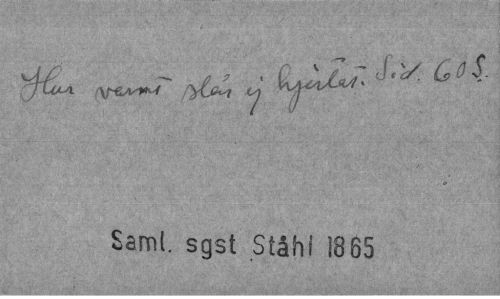 Hur varmt slår ej hjertat. Sid. 60 S.
Saml. sgst Ståhl 1865